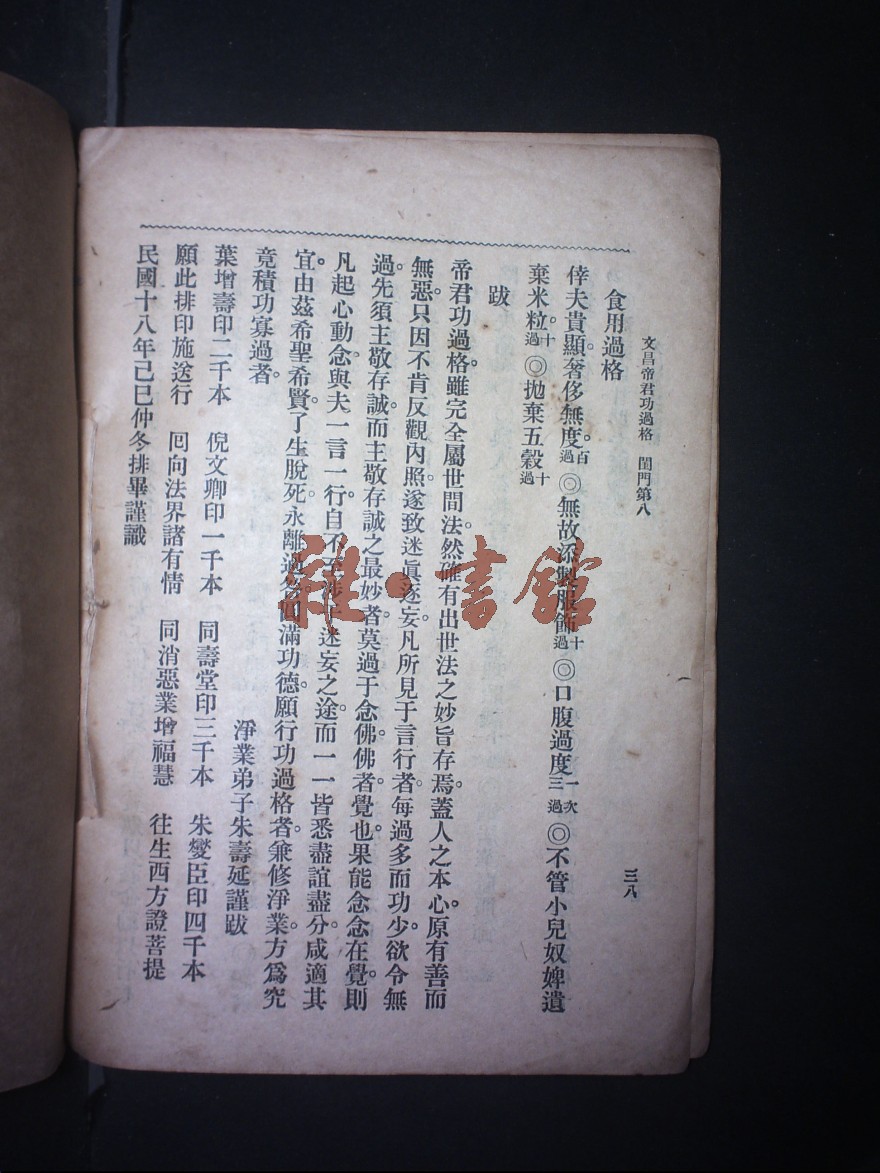 文昌帝君功過格 閨門第八 三八
食用過格
倖夫貴顯。奢侈無度。百過 ◎無故添製服飾十過 ◎口腹過度一次三過 ◎不管小兒奴婢遺
棄米粒。十過 ◎拋棄五穀十過
跋
帝君功過格。雖完全屬世間法。然確有出世法之妙旨存焉。蓋人之本心。原有善而
無惡。只因不肯反觀內照。遂致迷眞逐妄。凡所見于言行者。每過多而功少。欲令無
過。先須主敬存誠。而主敬存誠之最妙者。莫過于念佛。佛者。覺也。果能念念在覺。則
凡起心動念。與夫一言一行。自不至涉于迷妄之途。而一一皆悉盡誼盡分。咸適其
宜。由茲希聖希賢。了生脫死。永離過
圓滿功德。願行功過格者。兼修淨業。方爲究
竟積功寡過者。
淨業弟子朱壽延謹跋
葉增壽印二千本 倪文卿印一千本 同壽堂印三千本 朱燮臣印四千本
願此排印施送行 囘向法界諸有情 同消惡業增福慧 往生西方證菩提
民國十八年己巳仲冬排畢謹識
雜·書館